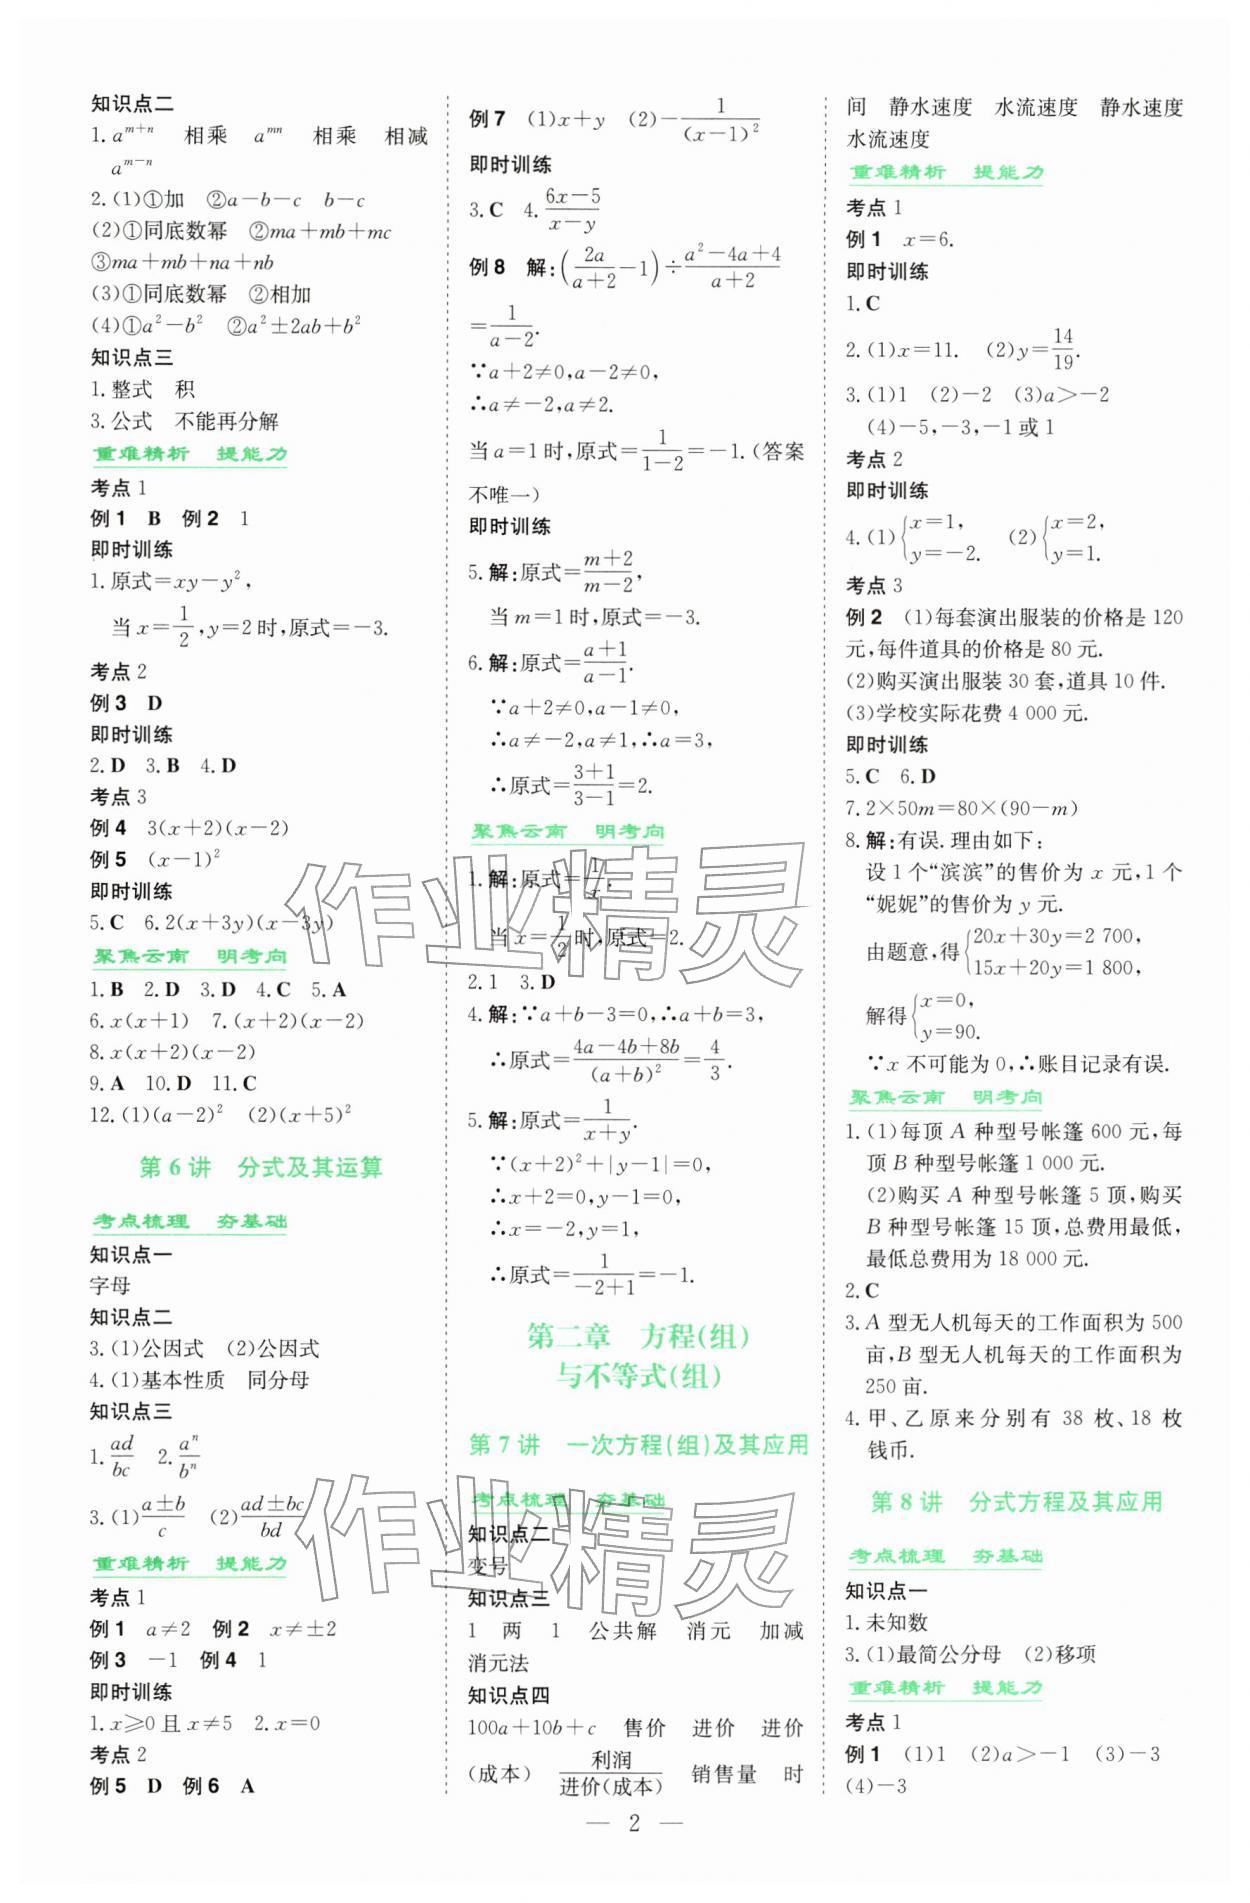 知识点二
1. a^{m+n}　相乘　a^{mn}　相乘　相减
a^{m-n}
2. (1)①加　②a-b-c　b-c
(2)①同底数幂　②ma+mb+mc
③ma+mb+na+nb
(3)①同底数幂　②相加
(4)①a²-b²　②a²±2ab+b²
知识点三
1. 整式　积
3. 公式　不能再分解
重难精析　提能力
考点 1
例 1　B　例 2　1
即时训练
1. 原式=xy-y²,
当 x=1/2, y=2 时,原式=-3.
考点 2
例 3　D
即时训练
2. D　3. B　4. D
考点 3
例 4　3(x+2)(x-2)
例 5　(x-1)²
即时训练
5. C　6. 2(x+3y)(x-3y)
聚焦云南　明考向
1. B　2. D　3. D　4. C　5. A
6. x(x+1)　7. (x+2)(x-2)
8. x(x+2)(x-2)
9. A　10. D　11. C
12. (1)(a-2)²　(2)(x+5)²
第 6 讲　分式及其运算
考点梳理　夯基础
知识点一
字母
知识点二
3. (1)公因式　(2)公因式
4. (1)基本性质　同分母
知识点三
1. ad/bc　2. aⁿ/bⁿ
3. (1)(a±b)/c　(2)(ad±bc)/bd
重难精析　提能力
考点 1
例 1　a≠2　例 2　x≠±2
例 3　-1　例 4　1
即时训练
1. x≥0 且 x≠5　2. x=0
考点 2
例 5　D　例 6　A
例 7　(1)x+y　(2)-1/(x-1)²
即时训练
3. C　4. (6x-5)/(x-y)
例 8　解:(2a/(a+2)-1)÷(a²-4a+4)/(a+2)
=1/(a-2).
∵a+2≠0,a-2≠0,
∴a≠-2,a≠2.
当 a=1 时,原式=1/(1-2)=-1.(答案
不唯一)
即时训练
5. 解:原式=(m+2)/(m-2),
当 m=1 时,原式=-3.
6. 解:原式=(a+1)/(a-1).
∵a+2≠0,a-1≠0,
∴a≠-2,a≠1,∴a=3,
∴原式=(3+1)/(3-1)=2.
聚焦云南　明考向
1. 解:原式=1/x.
当 x=1/2时,原式=2.
2. 1　3. D
4. 解:∵a+b-3=0,∴a+b=3,
∴原式=(4a-4b+8b)/(a+b)²=4/3.
5. 解:原式=1/(x+y).
∵(x+2)²+|y-1|=0,
∴x+2=0,y-1=0,
∴x=-2,y=1,
∴原式=1/(-2+1)=-1.
第二章　方程(组)
与不等式(组)
第 7 讲　一次方程(组)及其应用
考点梳理　夯基础
知识点二
变号
知识点三
1　两　1　公共解　消元　加减
消元法
知识点四
100a+10b+c　售价　进价　进价
(成本)　利润/进价(成本)　销售量　时
间　静水速度　水流速度　静水速度
水流速度
重难精析　提能力
考点 1
例 1　x=6.
即时训练
1. C
2. (1)x=11.　(2)y=14/19.
3. (1)1　(2)-2　(3)a>-2
(4)-5,-3,-1 或 1
考点 2
即时训练
4. (1){x=1, y=-2.　(2){x=2, y=1.
考点 3
例 2　(1)每套演出服装的价格是 120
元,每件道具的价格是 80 元.
(2)购买演出服装 30 套,道具 10 件.
(3)学校实际花费 4 000 元.
即时训练
5. C　6. D
7. 2×50m=80×(90-m)
8. 解:有误. 理由如下:
设 1 个“滨滨”的售价为 x 元,1 个
“妮妮”的售价为 y 元.
由题意,得{20x+30y=2 700, 15x+20y=1 800,
解得{x=0, y=90.
∵x 不可能为 0,∴账目记录有误.
聚焦云南　明考向
1. (1)每顶 A 种型号帐篷 600 元,每
顶 B 种型号帐篷 1 000 元.
(2)购买 A 种型号帐篷 5 顶,购买
B 种型号帐篷 15 顶,总费用最低,
最低总费用为 18 000 元.
2. C
3. A 型无人机每天的工作面积为 500
亩,B 型无人机每天的工作面积为
250 亩.
4. 甲、乙原来分别有 38 枚、18 枚
钱币.
第 8 讲　分式方程及其应用
考点梳理　夯基础
知识点一
1. 未知数
3. (1)最简公分母　(2)移项
重难精析　提能力
考点 1
例 1　(1)1　(2)a>-1　(3)-3
(4)-3
— 2 —
作业精灵
作业精灵